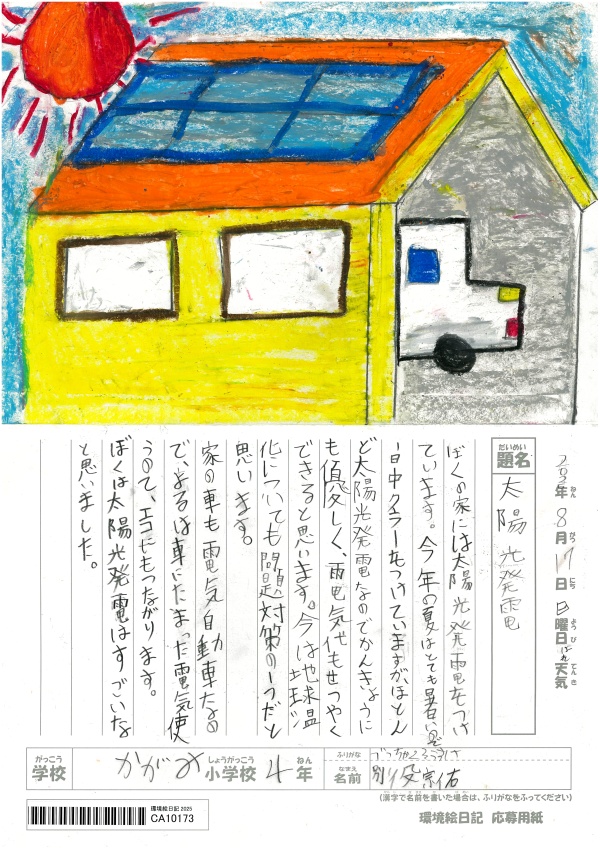 2025年8月17日日曜日はれ天気
ねん
がつ
にち
ようび
てんき
だいめい
題名
太陽光発電
ぼくの家には太陽光発電をつけ
ています。今年の夏はとても暑いので
一日中クーラーをつけていますがほとん
ど太陽光発電なのでかんきょうに
も優しく、電気代もせつやく
できると思います。今は地球温だん
化についても問題対策の一つだと
思います。
家の車も電気自動車なの
で、よるは車にたまった電気使
うので、エコにもつながります。
ぼくは太陽光発電はすごいな
と思いました。
がっこう
学校
かがみ
しょうがっこう
小学校
4
ねん
年
ふりがな
なまえ
名前
別役宗佑
(漢字で名前を書いた場合は、ふりがなをふってください)
環境絵日記 2025
CA10173
環境絵日記 応募用紙